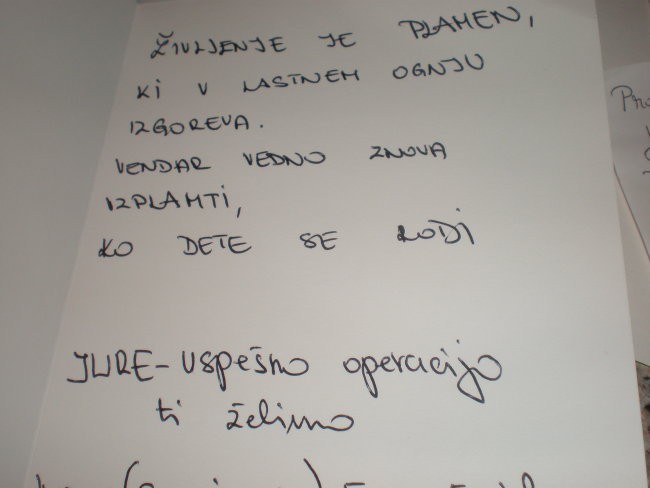 ŽIVLJENJE JE PLAMEN,
KI V LASTNEM OGNJU
IZGOREVA.
VENDAR VEDNO ZNOVA
IZPLAMTI,
KO DETE SE RODI
JURE-uspešno operacijo
ti želimo